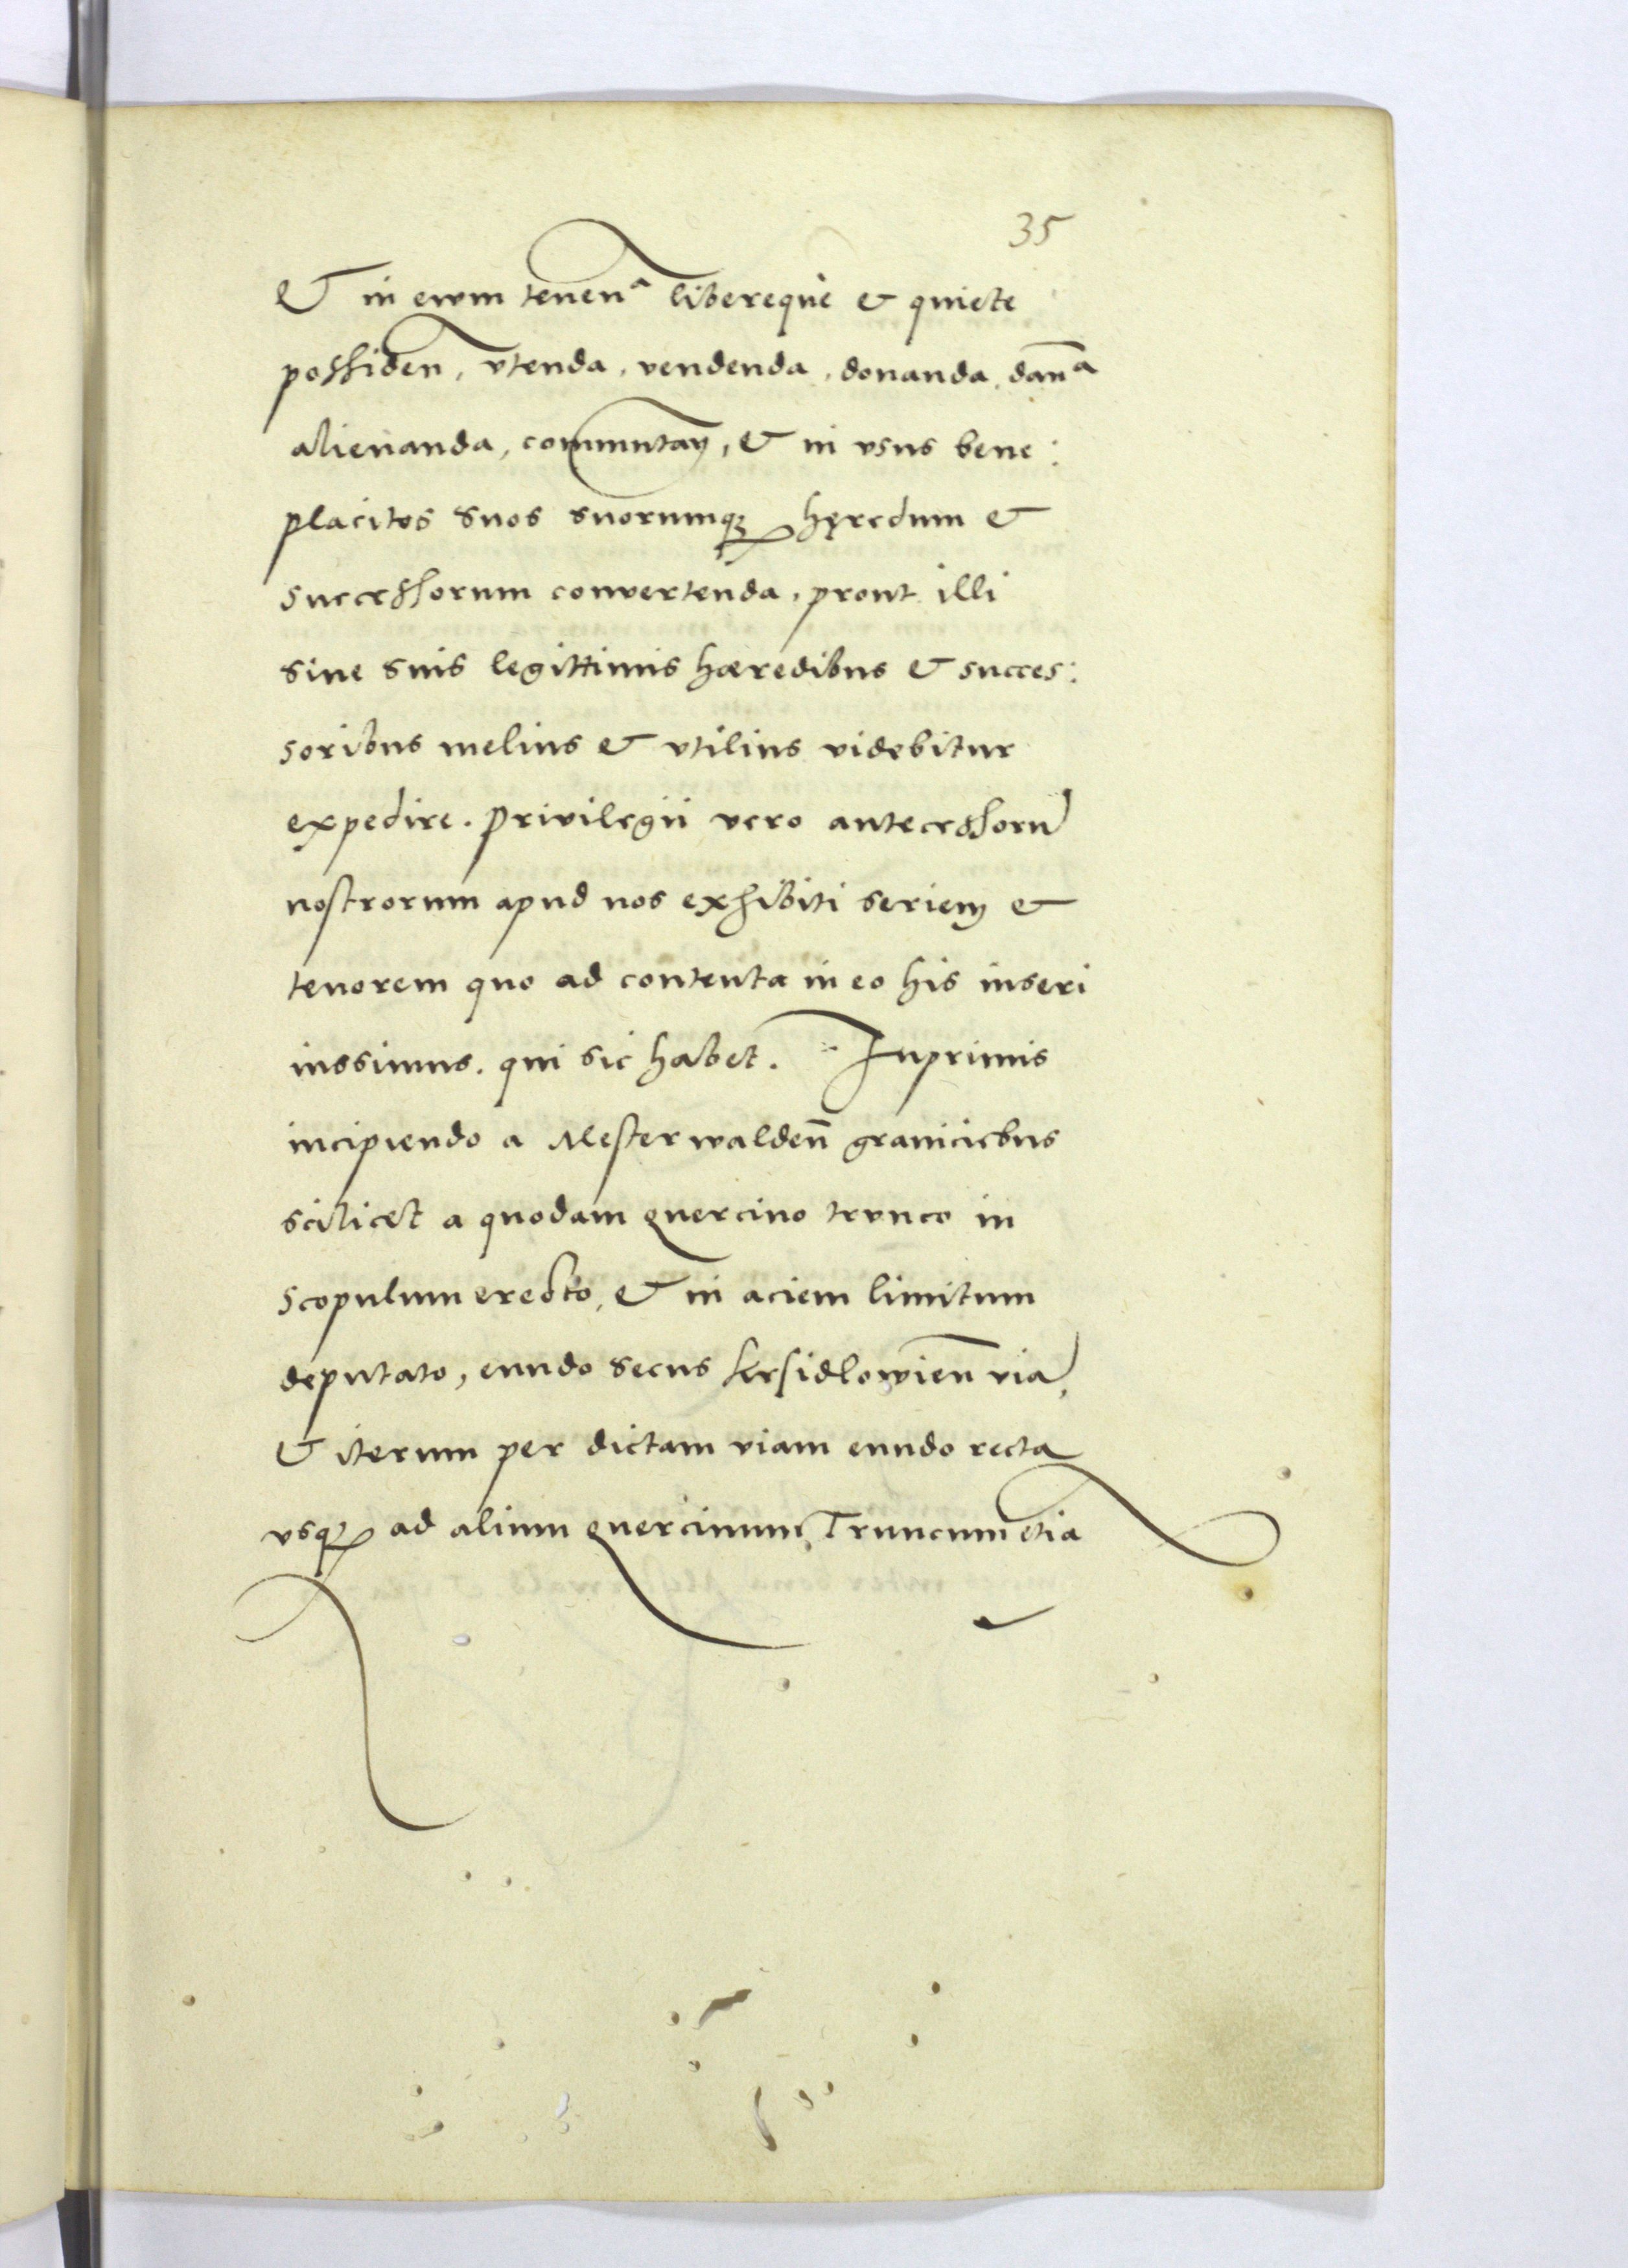 35
Et in evvm tenenᵃ libereque et quiete
possiden, vtenda, vendenda, donanda, dan̄ᵃ
alienanda, commutan, et in vsus bene:
placitos suos suorumqꝫ hęredum et
successorum convertenda, prout illi
sive suis legittimis hæredibus et succes:
soribus melius et vtilius videbitur
expedire. Privilegii vero antecessorū
nostrorum apud nos exhibiti seriem et
tenorem quo ad contenta in eo his inseri
iussimus. qui sic habet. Inprimis
incipiendo a Mesterwalden̄ graniciebus
scilicet a quodam quercino trunco in
scopulum erecto, et in aciem limitum
deputato, eundo secus viā,
et iterum per dictam viam eundo recta
vsqꝫ ad alium quercinum Truncum etia